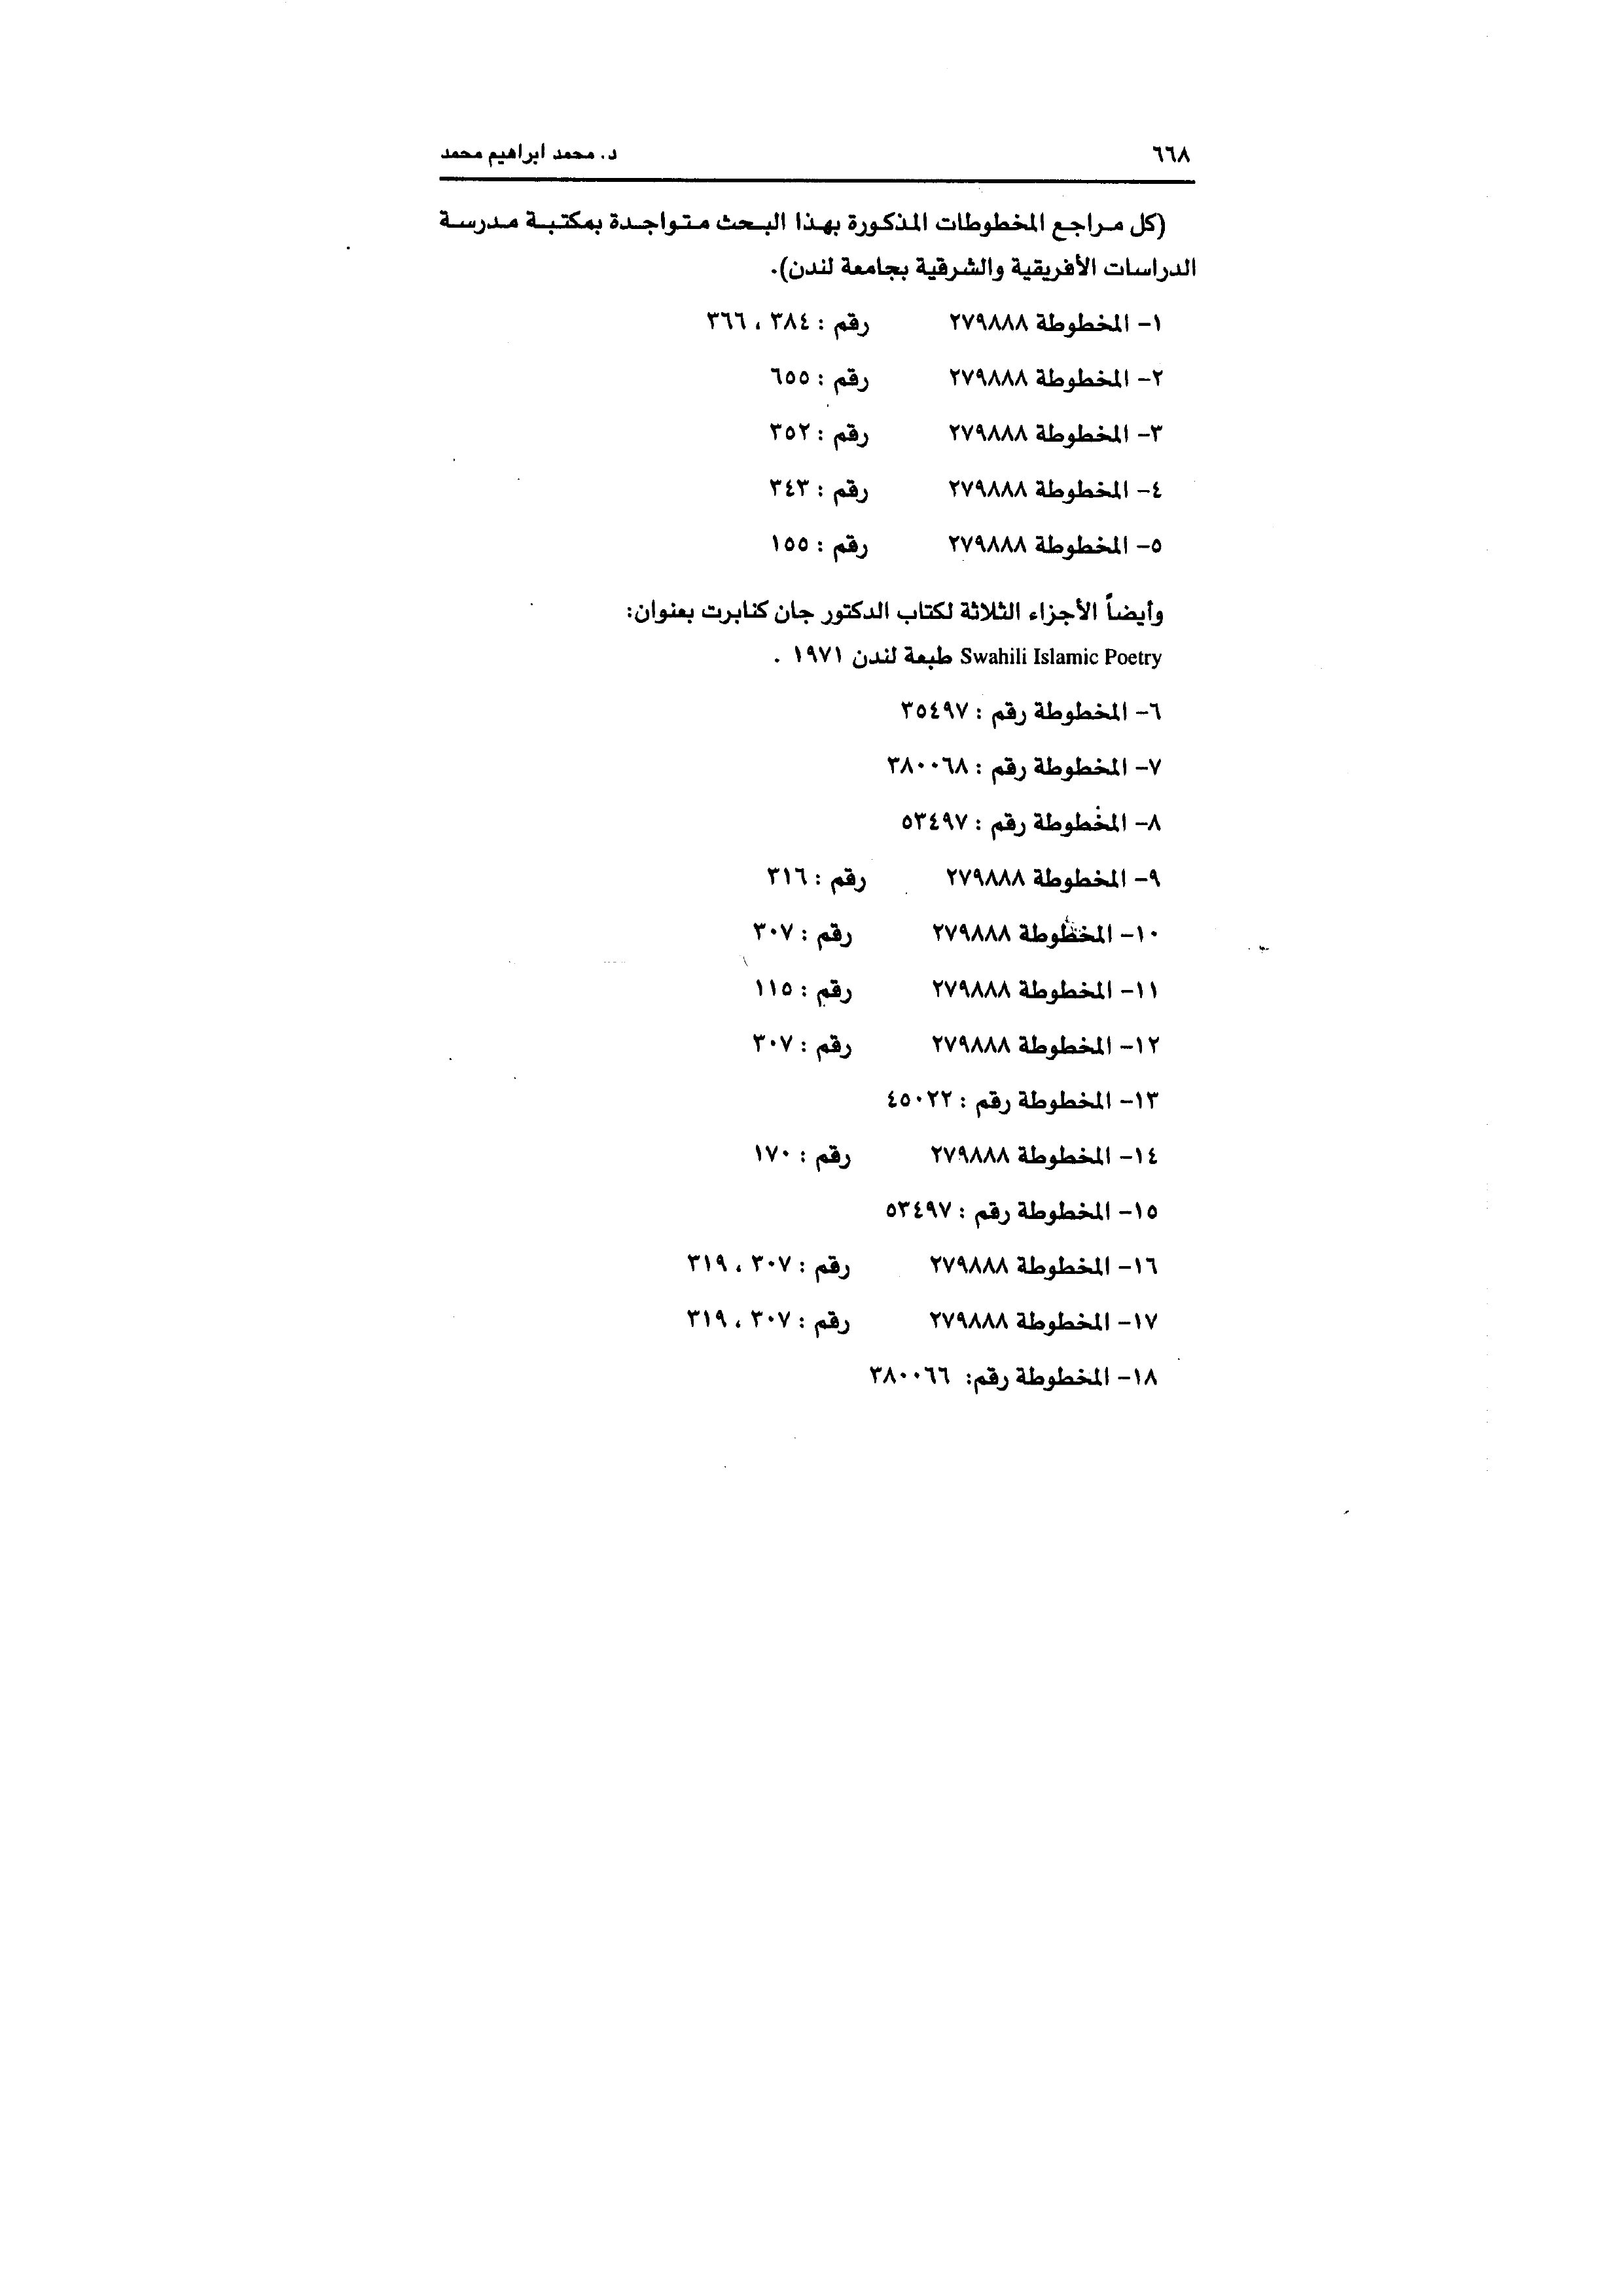 ٦٦٨ د. محمد ابراهيم محمد
(كل مراجع المخطوطات المذكورة بهذا البحث متواجدة بمكتبة مدرسة
الدراسات الأفريقية والشرقية بجامعة لندن).
١- المخطوطة ٢٧٩٨٨٨ رقم : ٣٨٤ ، ٣٦٦
٢- المخطوطة ٢٧٩٨٨٨ رقم : ٦٥٥
٣- المخطوطة ٢٧٩٨٨٨ رقم : ٣٥٢
٤- المخطوطة ٢٧٩٨٨٨ رقم : ٣٤٣
٥- المخطوطة ٢٧٩٨٨٨ رقم : ١٥٥
وأيضاً الأجزاء الثلاثة لكتاب الدكتور جان كنابرت بعنوان:
Swahili Islamic Poetry طبعة لندن ١٩٧١ .
٦- المخطوطة رقم : ٣٥٤٩٧
٧- المخطوطة رقم : ٣٨٠٠٦٨
٨- المخطوطة رقم : ٥٣٤٩٧
٩- المخطوطة ٢٧٩٨٨٨ رقم : ٣١٦
١٠- المخطوطة ٢٧٩٨٨٨ رقم : ٣٠٧
١١- المخطوطة ٢٧٩٨٨٨ رقم : ١١٥
١٢- المخطوطة ٢٧٩٨٨٨ رقم : ٣٠٧
١٣- المخطوطة رقم : ٤٥٠٢٢
١٤- المخطوطة ٢٧٩٨٨٨ رقم : ١٧٠
١٥- المخطوطة رقم : ٥٣٤٩٧
١٦- المخطوطة ٢٧٩٨٨٨ رقم : ٣٠٧ ، ٣١٩
١٧- المخطوطة ٢٧٩٨٨٨ رقم : ٣٠٧ ، ٣١٩
١٨- المخطوطة رقم: ٣٨٠٠٦٦